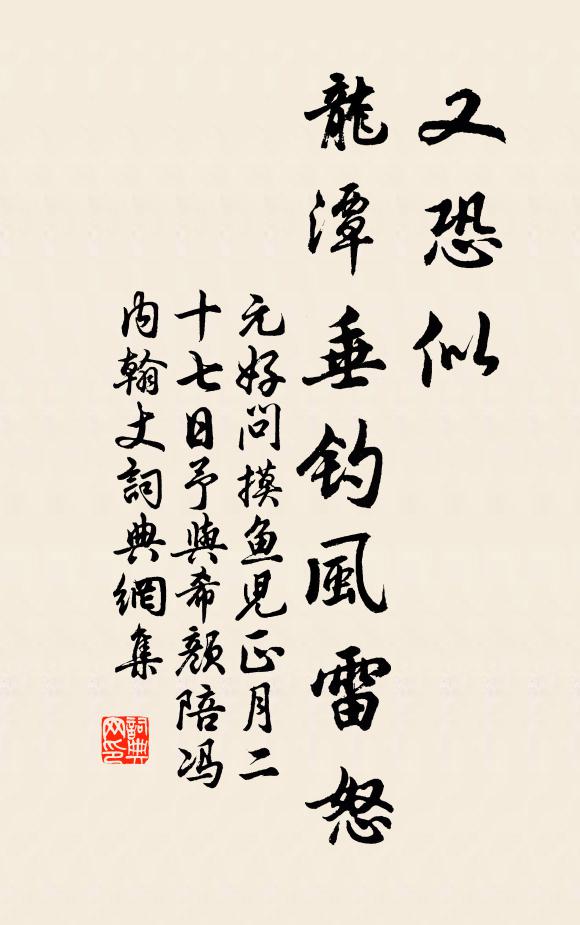 又恐似
龍潭垂釣風雷怒
元好問摸鱼児正月二
十七日予與希颜陪冯
内翰丈詞典網集
詞典网印